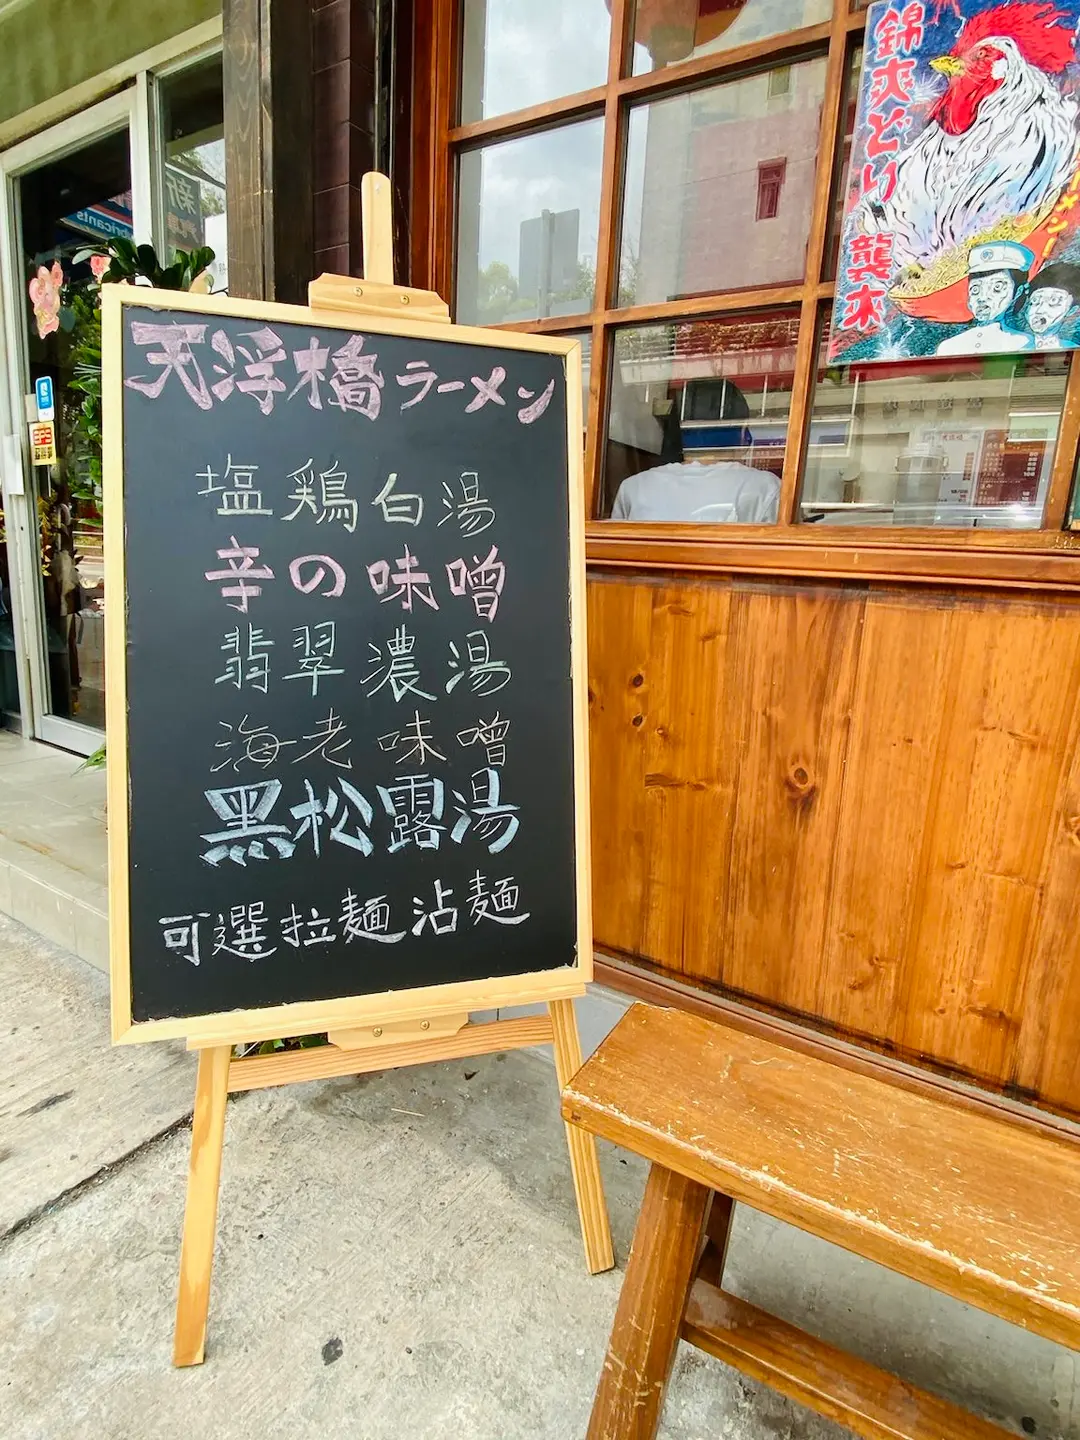 天浮橋ラーメン
塩鶏白湯
辛の味噌
翡翠濃湯
海老味噌
黒松露湯
可選拉麵沾麵
錦爽どり襲来
EPS